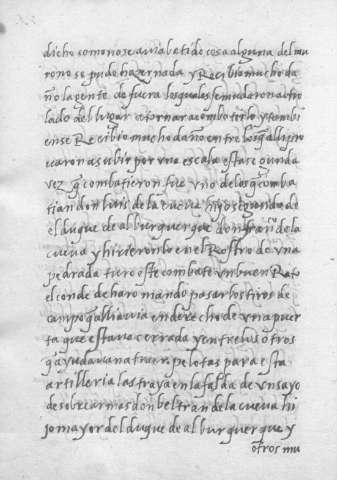 dicho como no se avia batido cosa alguna del mu
ro no se pudo hazer nada y Recibio mucho da
ño la gente de fuera los quales se mudaron a otro
lado del lugar a tornar a combatirlo y tambi
en se Recibio mucho daño entre los q̃ alli pro
vaaron a subir por una escala esta segunda
vez q̃ combatieron fue uno de los q̃ comba
tian don luis de la cueva hijo segundo de
el duque de alburquerque don franco de la
cueva y hirieronlo en el Rostro de una
pedrada turo este combate un buen Rato
el conde de haro mando pasar los tiros de
campo q̃ alli avia en derecho de una puer
ta que estava cerrada y entre los otros
q̃ ayudavan a traer pelotas para esta
artilleria las traya en la falda de un sayo
de sobre armas don beltran de la cueva hi
jo mayor del duque de alburquerque y
otros mu